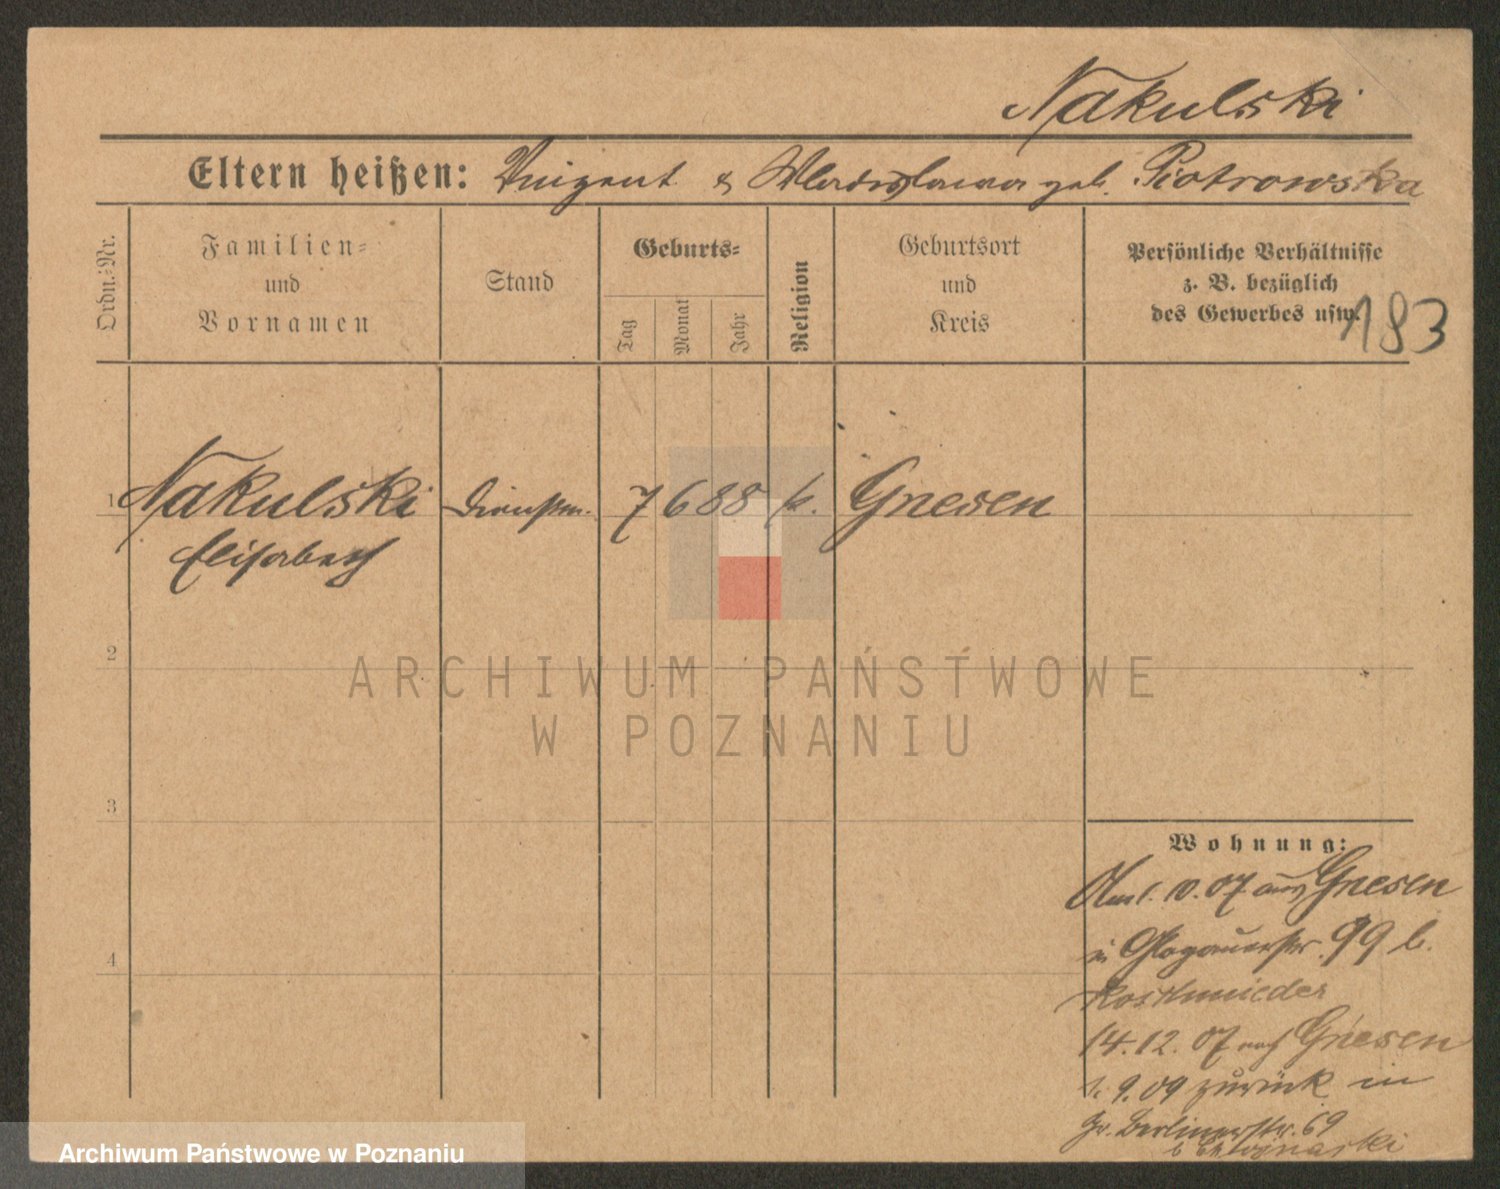 Nakulski
Eltern heißen: Vinzent & Wladislawa geb. Piotrowska
Ordn.=Nr.
Familien=
und
Vornamen
Stand
Geburts=
Tag
Monat
Jahr
Religion
Geburtsort
und
Kreis
Persönliche Verhältnisse
z. B. bezüglich
des Gewerbes usw.
183
1 Nakulski Dienstm. 7 6 88 k. Gnesen
Elisabeth
2
3
4
Wohnung:
Am 1. 10. 07 aus Gnesen
in Glogauerstr. 99 b.
Koschmieder
14. 12. 07 nach Gnesen
1. 9. 09 zurück in
Gr. Berlinerstr. 69
ARCHIWUM PAŃSTWOWE
W POZNANIU
Archiwum Państwowe w Poznaniu